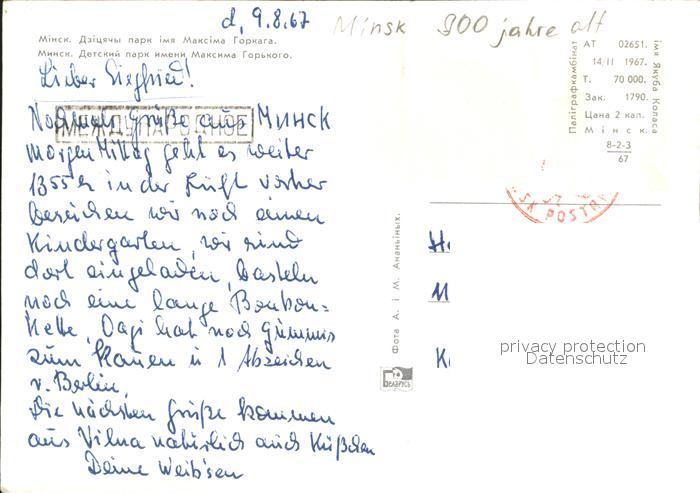 d. 9.8.67 Minsk 900 jahre alt
Мінск. Дзіцячы парк імя Максіма Горкага.
Минск. Детский парк имени Максима Горького.
Lieber Siegfried!
МЕЖДУНАРОДНОЕ
Nochmals Grüße aus Минск
Morgen Mittag geht es weiter
1355 h in der Luft vorher
besuchen wir noch einen
Kindergarten, wir sind
dort eingeladen, basteln
noch eine lange Bonbon=
Kette, Dagi hat noch Gummis
zum Kauen u 1 Abzeichen
v. Berlin.
Die nächsten Grüße kommen
aus Vilna natürlich auch Küßchen
Deine Weib'sen
Фота А. і М. Ананьіных.
БЕЛАРУСЬ
Паліграфкамбінат
імя Якуба Коласа
АТ 02651.
14/II 1967.
Т. 70 000.
Зак. 1790.
Цана 2 кап.
Мінск.
8-2-3
67
SK POSTA
privacy protection
Datenschutz